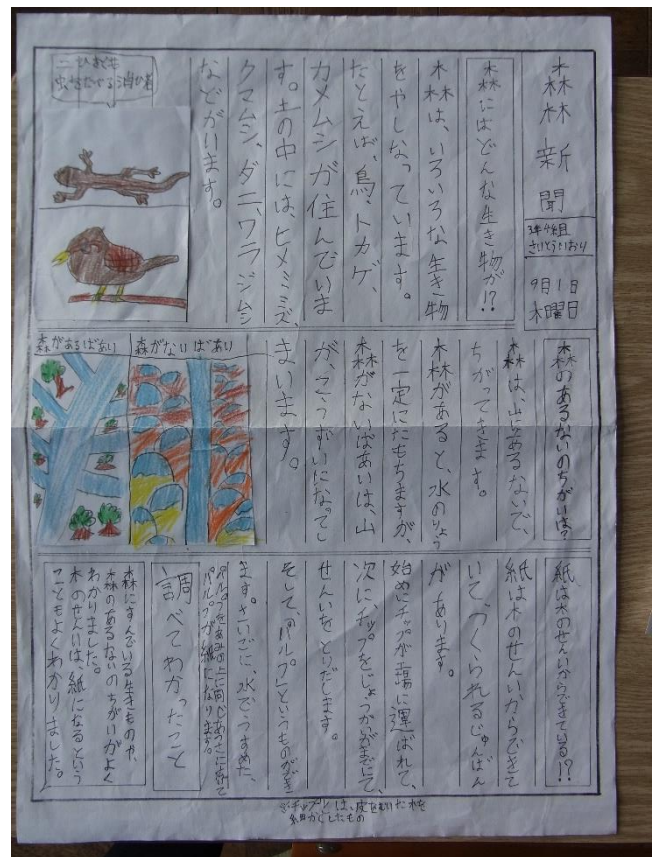 森林新聞
3年4組
さいとういおり
9月1日
木曜日
森にはどんな生き物が!?
森林は、いろいろな生き物
をやしなっています。
たとえば、鳥、トカゲ、
カメムシが住んでいま
す。土の中には、ヒメミミズ、
クマムシ、ダニ、ワラジムシ
などがいます。
森のあるないのちがいは?
森林は、山にあるないで、
ちがってきます。
森林があると、水のりょう
を一定にたもちますが、
森林がないばあいは、山
が、こうずいになってし
まいます。
森がないばあい
森があるばあい
紙は木のせんいからできている!?
紙は木のせんいからできて
いて、つくられるじゅんばん
があります。
始めにチップが工場に運ばれて、
次に、チップをじょうかがまにて、
せんいをとりだします。
そして、「パルプ」というものができ
ます。さいごに、水でうすめた、
パルプをあみの上に同じあつさにして
パルプが紙になります。
調べてわかったこと
森にすんでいる生きものや、
森のあるないのちがいがよく
わかりました。
木のせんいは、紙になるという
こともよくわかりました。
※チップとは、皮をむいた木を
細かくしたもの